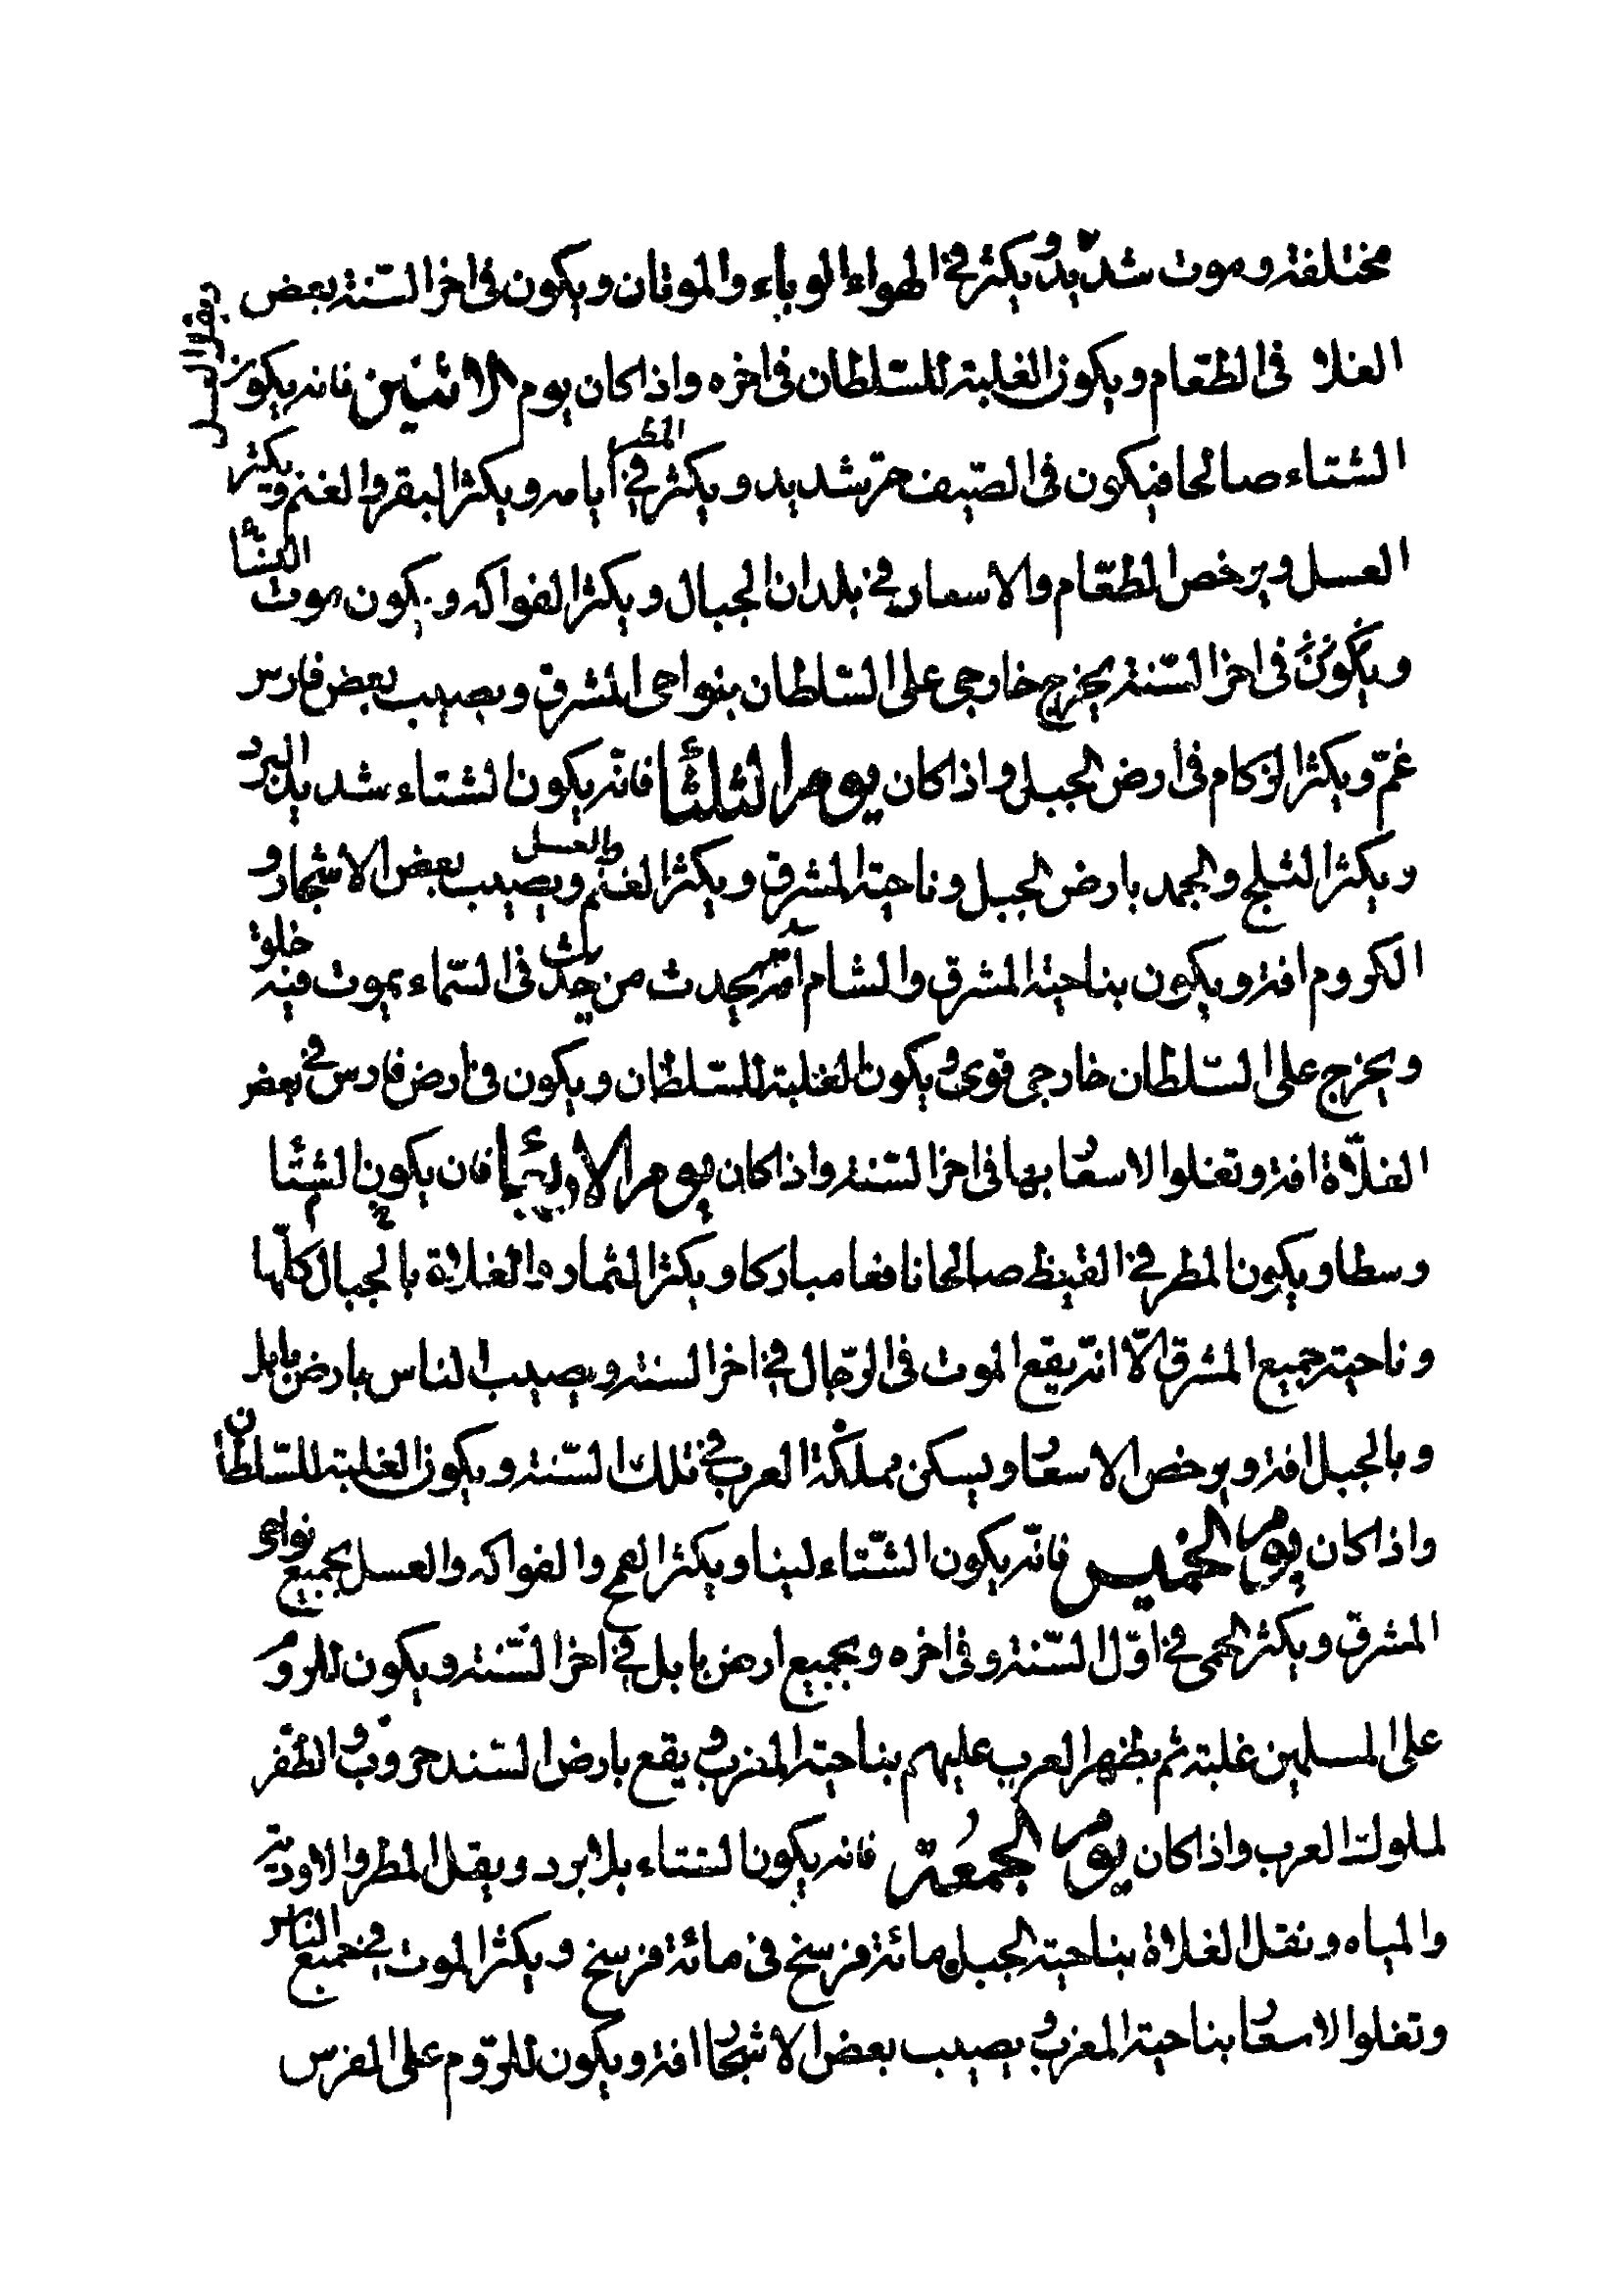 مختلفة وموت شديد ويكثر في الهواء الوباء والموتان ويكون في اخر السّنة بعض
الغلا في الطّعام ويكون الغلبة للسّلطان في اخره واذا كان يوم الاثنين فانه يكون
الشتاء صالحا فيكون في الصّيف حرّ شديد ويكثر المطر في ايامه ويكثر البقر والغنم ويكثر
العسل ويرخص الطّعام والاسعار في بلدان الجبال ويكثر الفواكه ويكون موت النسٓا
ويكون في اخر السّنة يخرج خارجى على السّلطان بنواحى المشرق ويصيب بعض فارس
غمّ ويكثر الزكام في ارض الجبل واذا كان يوم الثلثٓا فانّه يكون الشتاء شديد البرد
ويكثر الثلج والجمد بارض الجبل وناحية المشرق ويكثر الغنم والعسل ويصيب بعض الاشجار و
الكروم افة ويكون بناحية المشرق والشام امر يحدث من حدث في السّماء يموت فيه خلق
ويخرج على السّلطان خارجى قوى ويكون الغلبة للسّلطان ويكون في ارض فارس في بعض
الغلّاة افة وتغلوا الاسعار بها في اخر السّنة واذا كان يوم الاربعٓا فان يكون الشتٓا
وسطا ويكون المطر في القيظ صالحا نافعا مباركا ويكثر الثمار والغلاة بالجبال كلّها
وناحية جميع المشرق الّا انّه يقع الموت في الرّجال في اخر السنة ويصيب الناس بارض بابل
وبالجبل افة ويرخص الاسعار ويسكن مملكة العرب في تلك السّنة ويكون الغلبة للسّلطان
واذا كان يوم الخميس فانّه يكون الشّتاء لينا ويكثر القمح والفواكه والعسل بجميع نواحى
المشرق ويكثر الحمى في اوّل السّنة وفي اخره وبجميع ارض بابل في اخر السّنة ويكون للروم
على المسلمين غلبة ثم يظهر العرب عليهم بناحية المغرب ويقع بارض السّند حروب والظّفر
لملوك العرب واذا كان يوم الجمعة فانه يكون الشتاء بلا برد ويقل المطر والاودية
والمياه وتقل الغلاة بناحية الجبل مائة فرسخ في مائة فرسخ ويكثر الموت في جميع الناس
وتغلوا الاسعار بناحية المغرب ويصيب بعض الاشجار افة ويكون للرّوم على الفرس